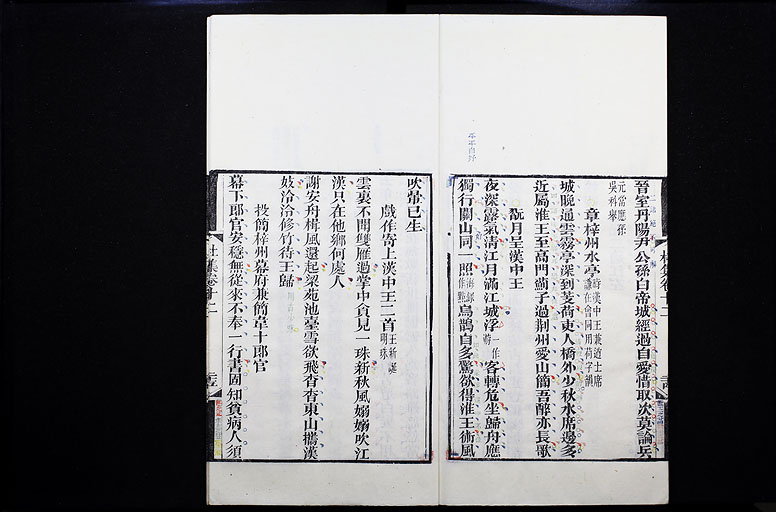 晉室丹陽尹公孫白帝城經過自愛惜取次莫論兵
元常應孫
吳科舉
章梓州水亭
時漢中王兼道士席
謙在會同用荷字韻
城晚通雲霧亭深到芰荷吏人橋外少秋水席邊多
近屬淮王至高門薊子過荆州愛山簡吾醉亦長歌
翫月呈漢中王
夜深露氣清江月滿江城浮
一作
游
客轉危坐歸舟應
獨行關山同一照
烏鵲自多驚欲得淮王術風
吹暈已生
戲作寄上漢中王二首
王新誕
明珠
雲裏不聞雙雁過掌中貪見一珠新秋風嫋嫋吹江
漢只在他鄉何處人
謝安舟楫風還起梁苑池臺雪欲飛杳杳東山攜漢
妓泠泠修竹待王歸
投簡梓州幕府兼簡韋十郎官
幕下郎官安穩無從來不奉一行書固知貧病人須
杜集卷十二